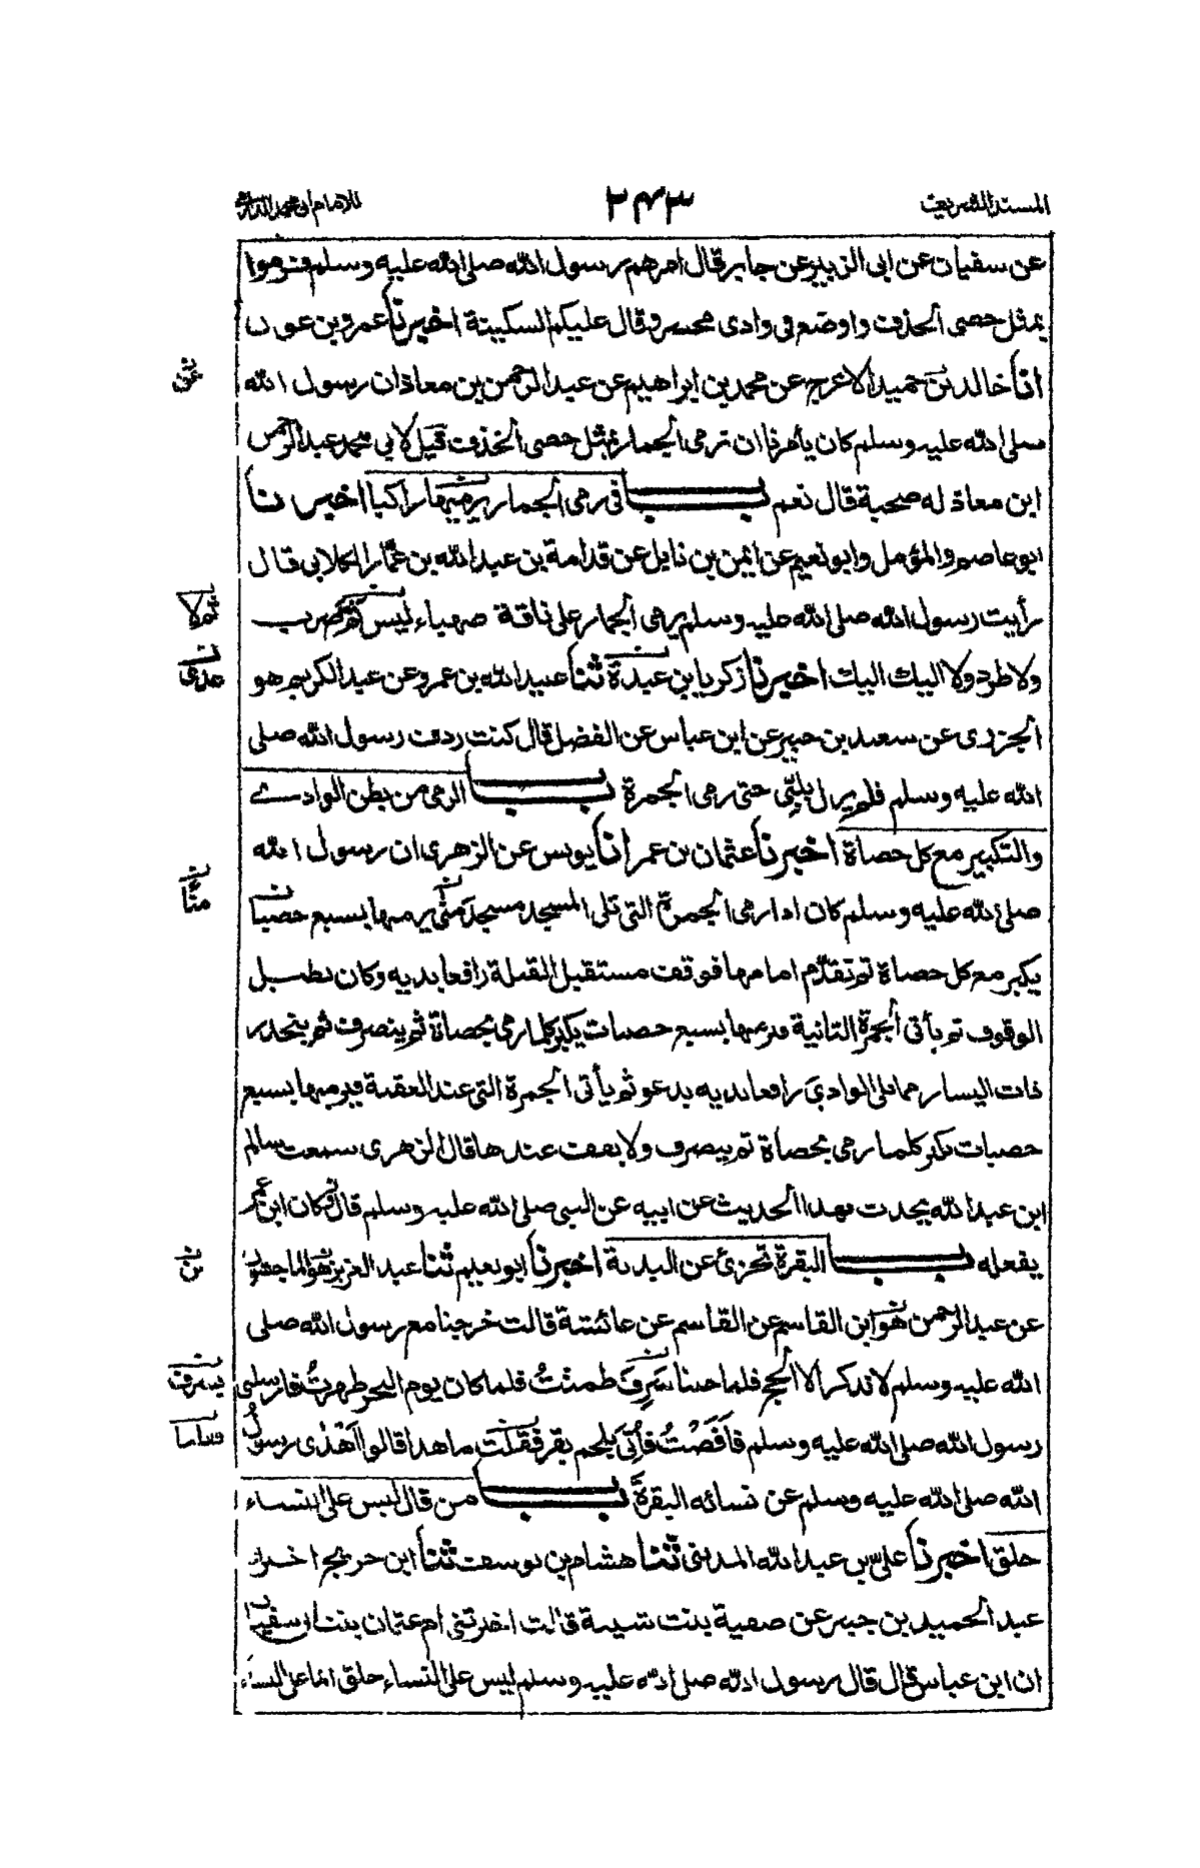 المسند الشريف ٢٤٣ للامام ابی محمد الدارمی
عن سفيان عن ابى الزبير عن جابر قال امرهم رسول الله صلى الله عليه وسلم فرموا
بمثل حصى الخذف واوضع فى وادى محسر وقال عليكم السكينة اخبرنا عمرو بن عون
انا خالد بن حميد الاعرج عن محمد بن ابراهيم عن عبد الرحمن بن معاذ ان رسول الله
عن
صلى الله عليه وسلم كان يأمرنا ان نرمى الجمار بمثل حصى الخذف قيل لابي محمد عبد الرحمن
ابن معاذ له صحبة قال نعم باب فى رمى الجمار يرميها راكبا اخبرنا
ابو عاصم والمؤمل وابو نعيم عن ايمن بن نابل عن قدامة بن عبد الله بن عمار الكلابى قال
رأيت رسول الله صلى الله عليه وسلم يرمى الجمار على ناقة صهباء ليس ثم ضرب
ثم لا
ولا طرد ولا اليك اليك اخبرنا زكريا بن عبدة ثنا عبيد الله بن عمرو عن عبد الكريم هو
عدى
الجزرى عن سعيد بن جبير عن ابن عباس عن الفضل قال كنت ردف رسول الله صلى
الله عليه وسلم فلم يزل يلبي حتى رمى الجمرة باب الرمى من بطن الوادے
والتكبير مع كل حصاة اخبرنا عثمان بن عمر انا يونس عن الزهرى ان رسول الله
صلى الله عليه وسلم كان اذا رمى الجمرة التى تلى المسجد مسجد منى يرميها بسبع حصيات
منًا
يكبر مع كل حصاة ثم تقدم امامها فوقف مستقبل القبلة رافعا يديه وكان يطيل
الوقوف ثم يأتى الجمرة الثانية فيرميها بسبع حصيات يكبر كلما رمى بحصاة ثم ينصرف ثم ينحدر
ذات اليسار مما يلى الوادى رافعا يديه يدعو ثم يأتى الجمرة التى عند العقبة فيرميها بسبع
حصيات يكبر كلما رمى بحصاة ثم ينصرف ولا يقف عندها قال الزهرى سمعت سالم
ابن عبد الله يحدث بهذا الحديث عن ابيه عن النبى صلى الله عليه وسلم قال وكان ابن عمر
يفعله باب البقرة تجزئ عن البدنة اخبرنا ابو نعيم ثنا عبد العزيز هو الماجشون
بن
عن عبد الرحمن هو ابن القاسم عن القاسم عن عائشة قالت خرجنا مع رسول الله صلى
الله عليه وسلم لا نذكر الا الحج فلما جئنا سرف طمثت فلما كان يوم النحر طهرت فارسلنى
بسرف
رسول الله صلى الله عليه وسلم فأفضت فأتى بلحم بقر فقلت ما هذا قالوا اهدى رسول
الله صلى الله عليه وسلم عن نسائه البقرة باب من قال ليس على النساء
حلق اخبرنا على بن عبد الله المدينى ثنا هشام بن يوسف ثنا ابن جريج اخبرنى
عبد الحميد بن جبير عن صفية بنت شيبة قالت اخبرتنى ام عثمان بنت ابى سفيان
ان ابن عباس قال قال رسول الله صلى الله عليه وسلم ليس على النساء حلق انما على النساء